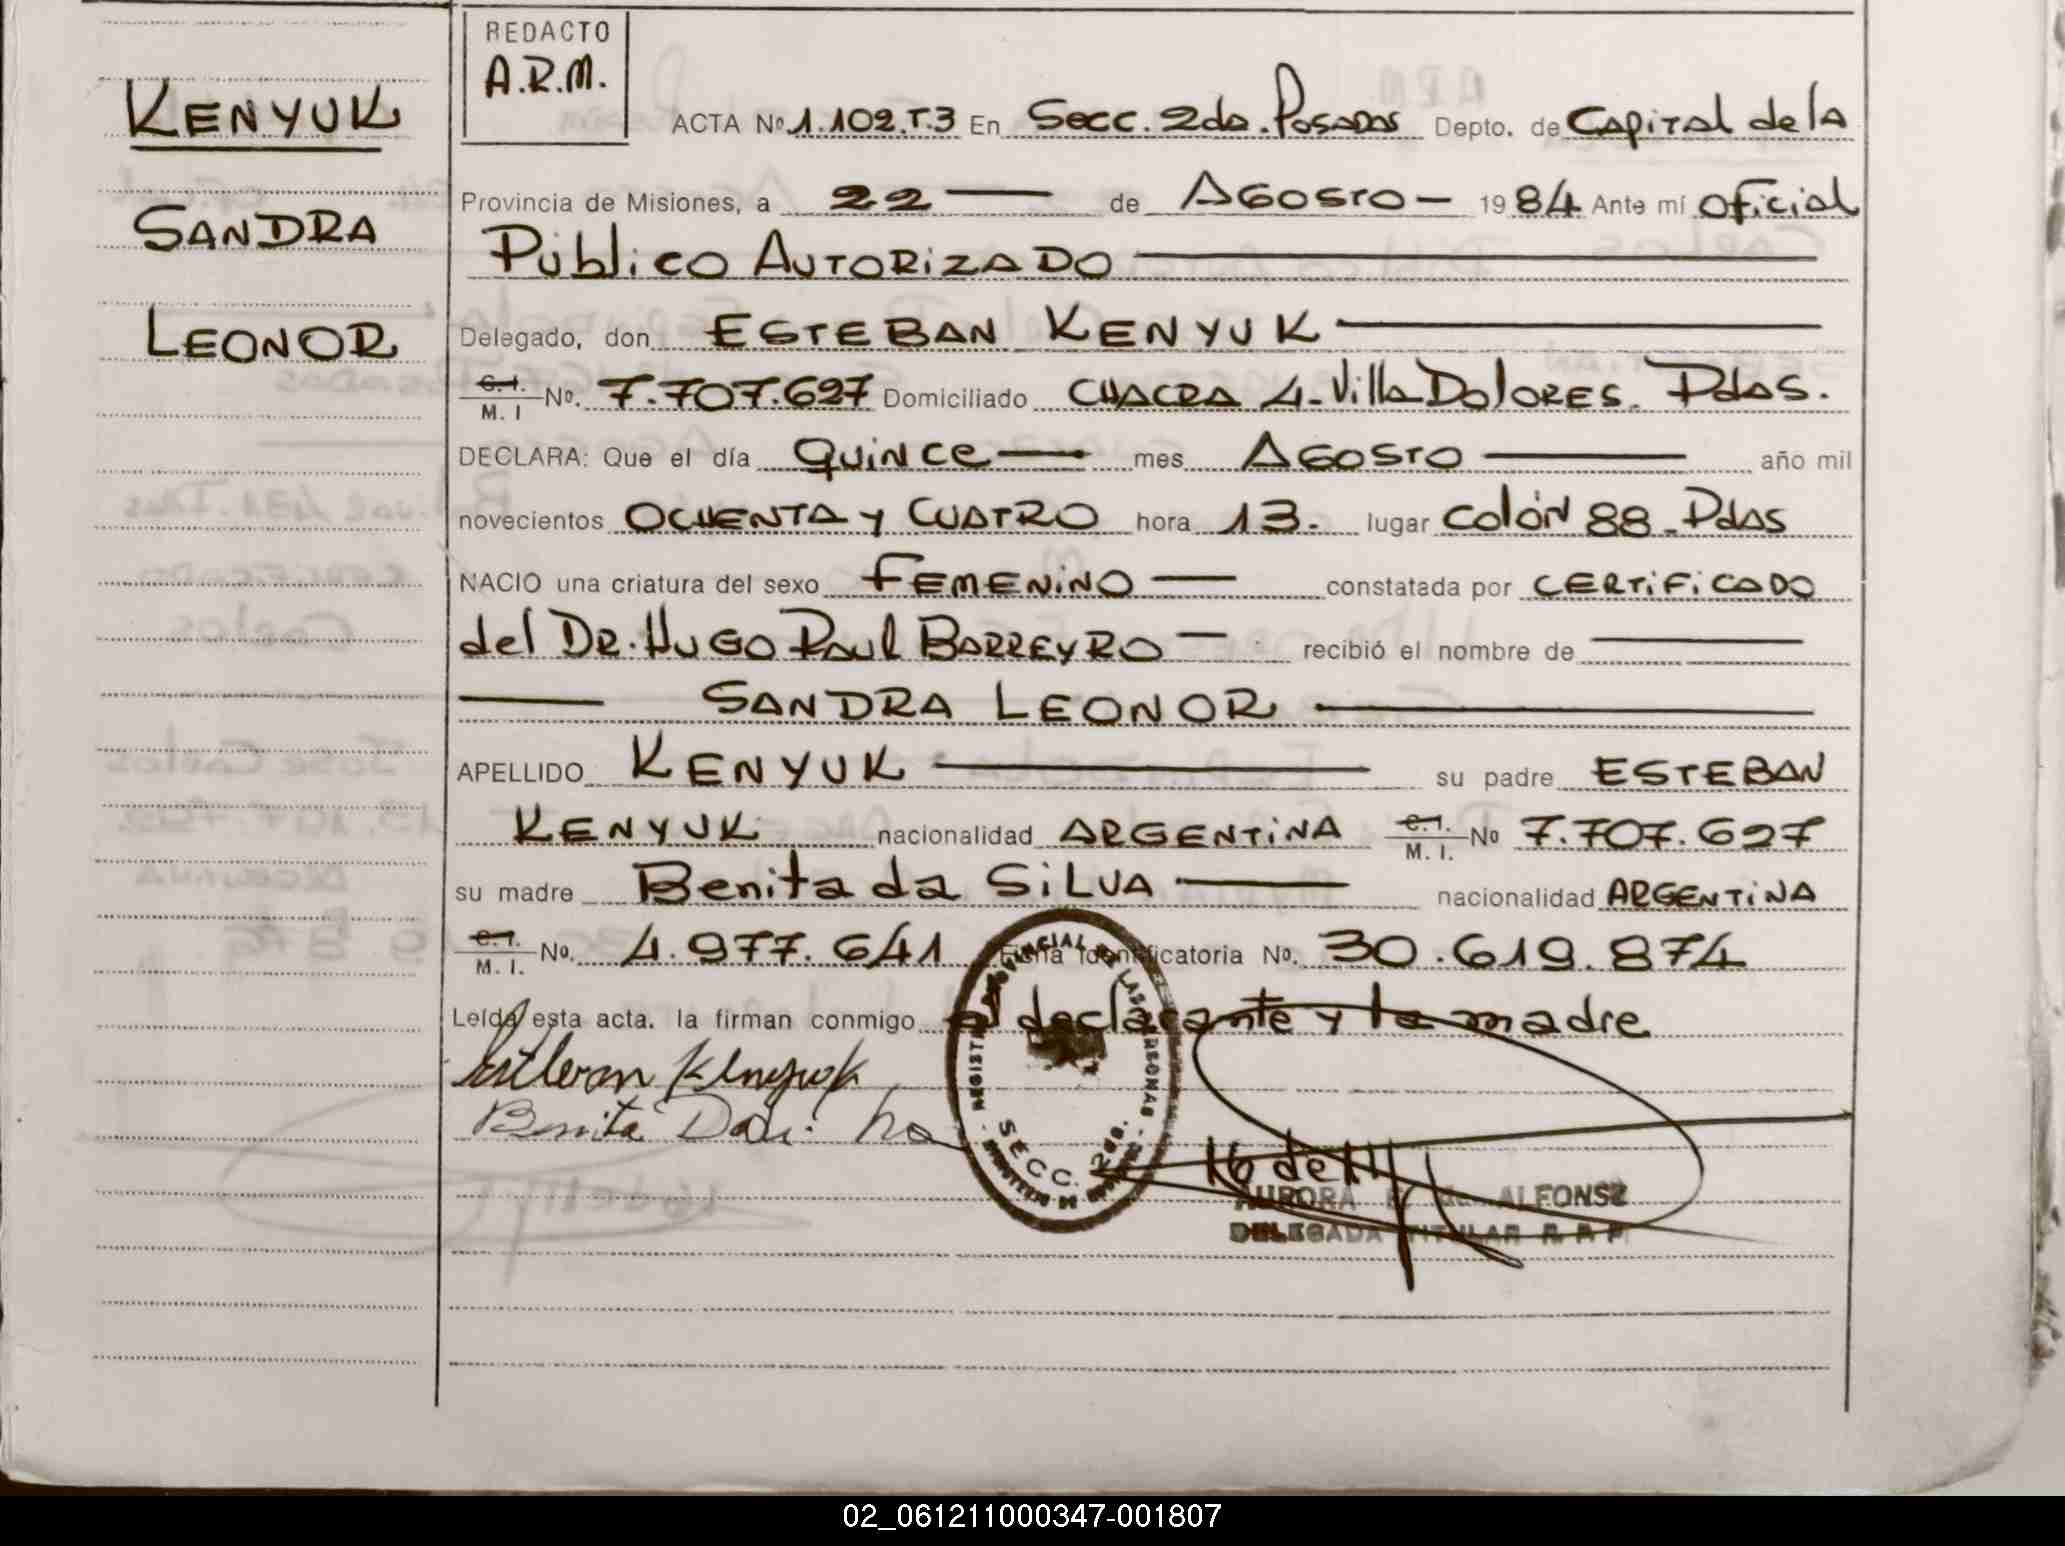 KENYUK
SANDRA
LEONOR
REDACTO
A.R.M.
ACTA Nº 1.102.T.3 En Secc. 2da. Posadas Depto. de Capital de la
Provincia de Misiones, a 22 de Agosto 1984 Ante mí Oficial
Público Autorizado
Delegado, don ESTEBAN KENYUK
C.I. M. I Nº. 7.707.627 Domiciliado CHACRA 4-Villa Dolores. Pdas.
DECLARA: Que el día Quince mes Agosto año mil
novecientos OCHENTA y CUATRO hora 13. lugar Colón 88-Pdas
NACIO una criatura del sexo FEMENINO constatada por CERTIFICADO
del DR. HUGO RAUL BARREYRO recibió el nombre de
SANDRA LEONOR
APELLIDO KENYUK su padre ESTEBAN
KENYUK nacionalidad ARGENTINA C.I. M. I. Nº 7.707.627
su madre Benita da SILVA nacionalidad ARGENTINA
C.I. M. I. Nº. 4.977.641 Ficha Identificatoria Nº. 30.619.874
Leída esta acta. la firman conmigo el declarante y la madre
Esteban Kenyuk
Benita
REGISTRO PROVINCIAL DE LAS PERSONAS
SECC. 2da.
AURORA ALFONSO
DELEGADA TITULAR R. P. P.
02_061211000347-001807